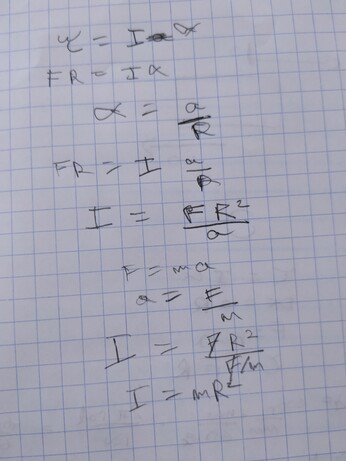 τ = I α
FR = I α
α = a/R
FR = I a/R
I = FR²/a
F = ma
a = F/m
I = FR²/F/m
I = mR²